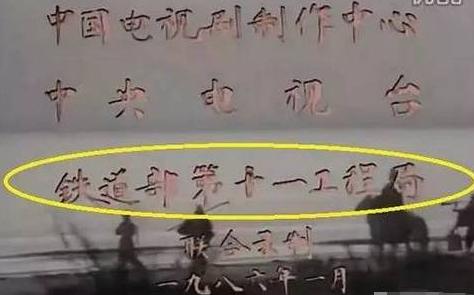 中国电视剧制作中心
中央电视台
铁道部第十一工程局
联合录制
一九八六年一月